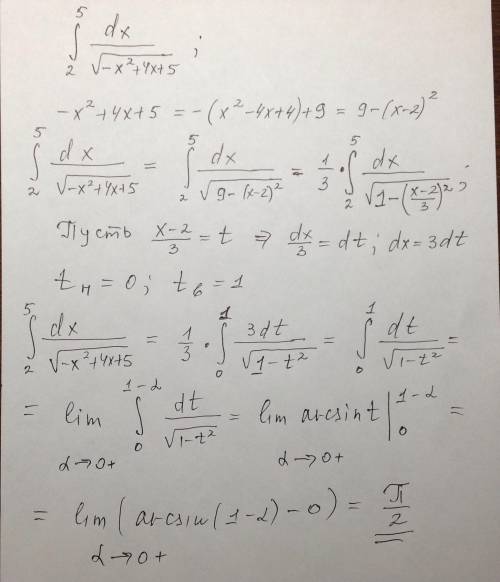 ∫₂⁵ dx/√(-x²+4x+5) ;
-x²+4x+5 = -(x²-4x+4)+9 = 9-(x-2)²
∫₂⁵ dx/√(-x²+4x+5) = ∫₂⁵ dx/√(9-(x-2)²) = 1/3 · ∫₂⁵ dx/√(1-((x-2)/3)²) ;
Пусть (x-2)/3 = t ⇒ dx/3 = dt; dx = 3dt
tн = 0; tв = 1
∫₂⁵ dx/√(-x²+4x+5) = 1/3 · ∫₀¹ 3dt/√(1-t²) = ∫₀¹ dt/√(1-t²) =
= lim α→0+ ∫₀^(1-α) dt/√(1-t²) = lim α→0+ arcsin t |₀^(1-α) =
= lim α→0+ (arcsin(1-α) - 0) = π/2